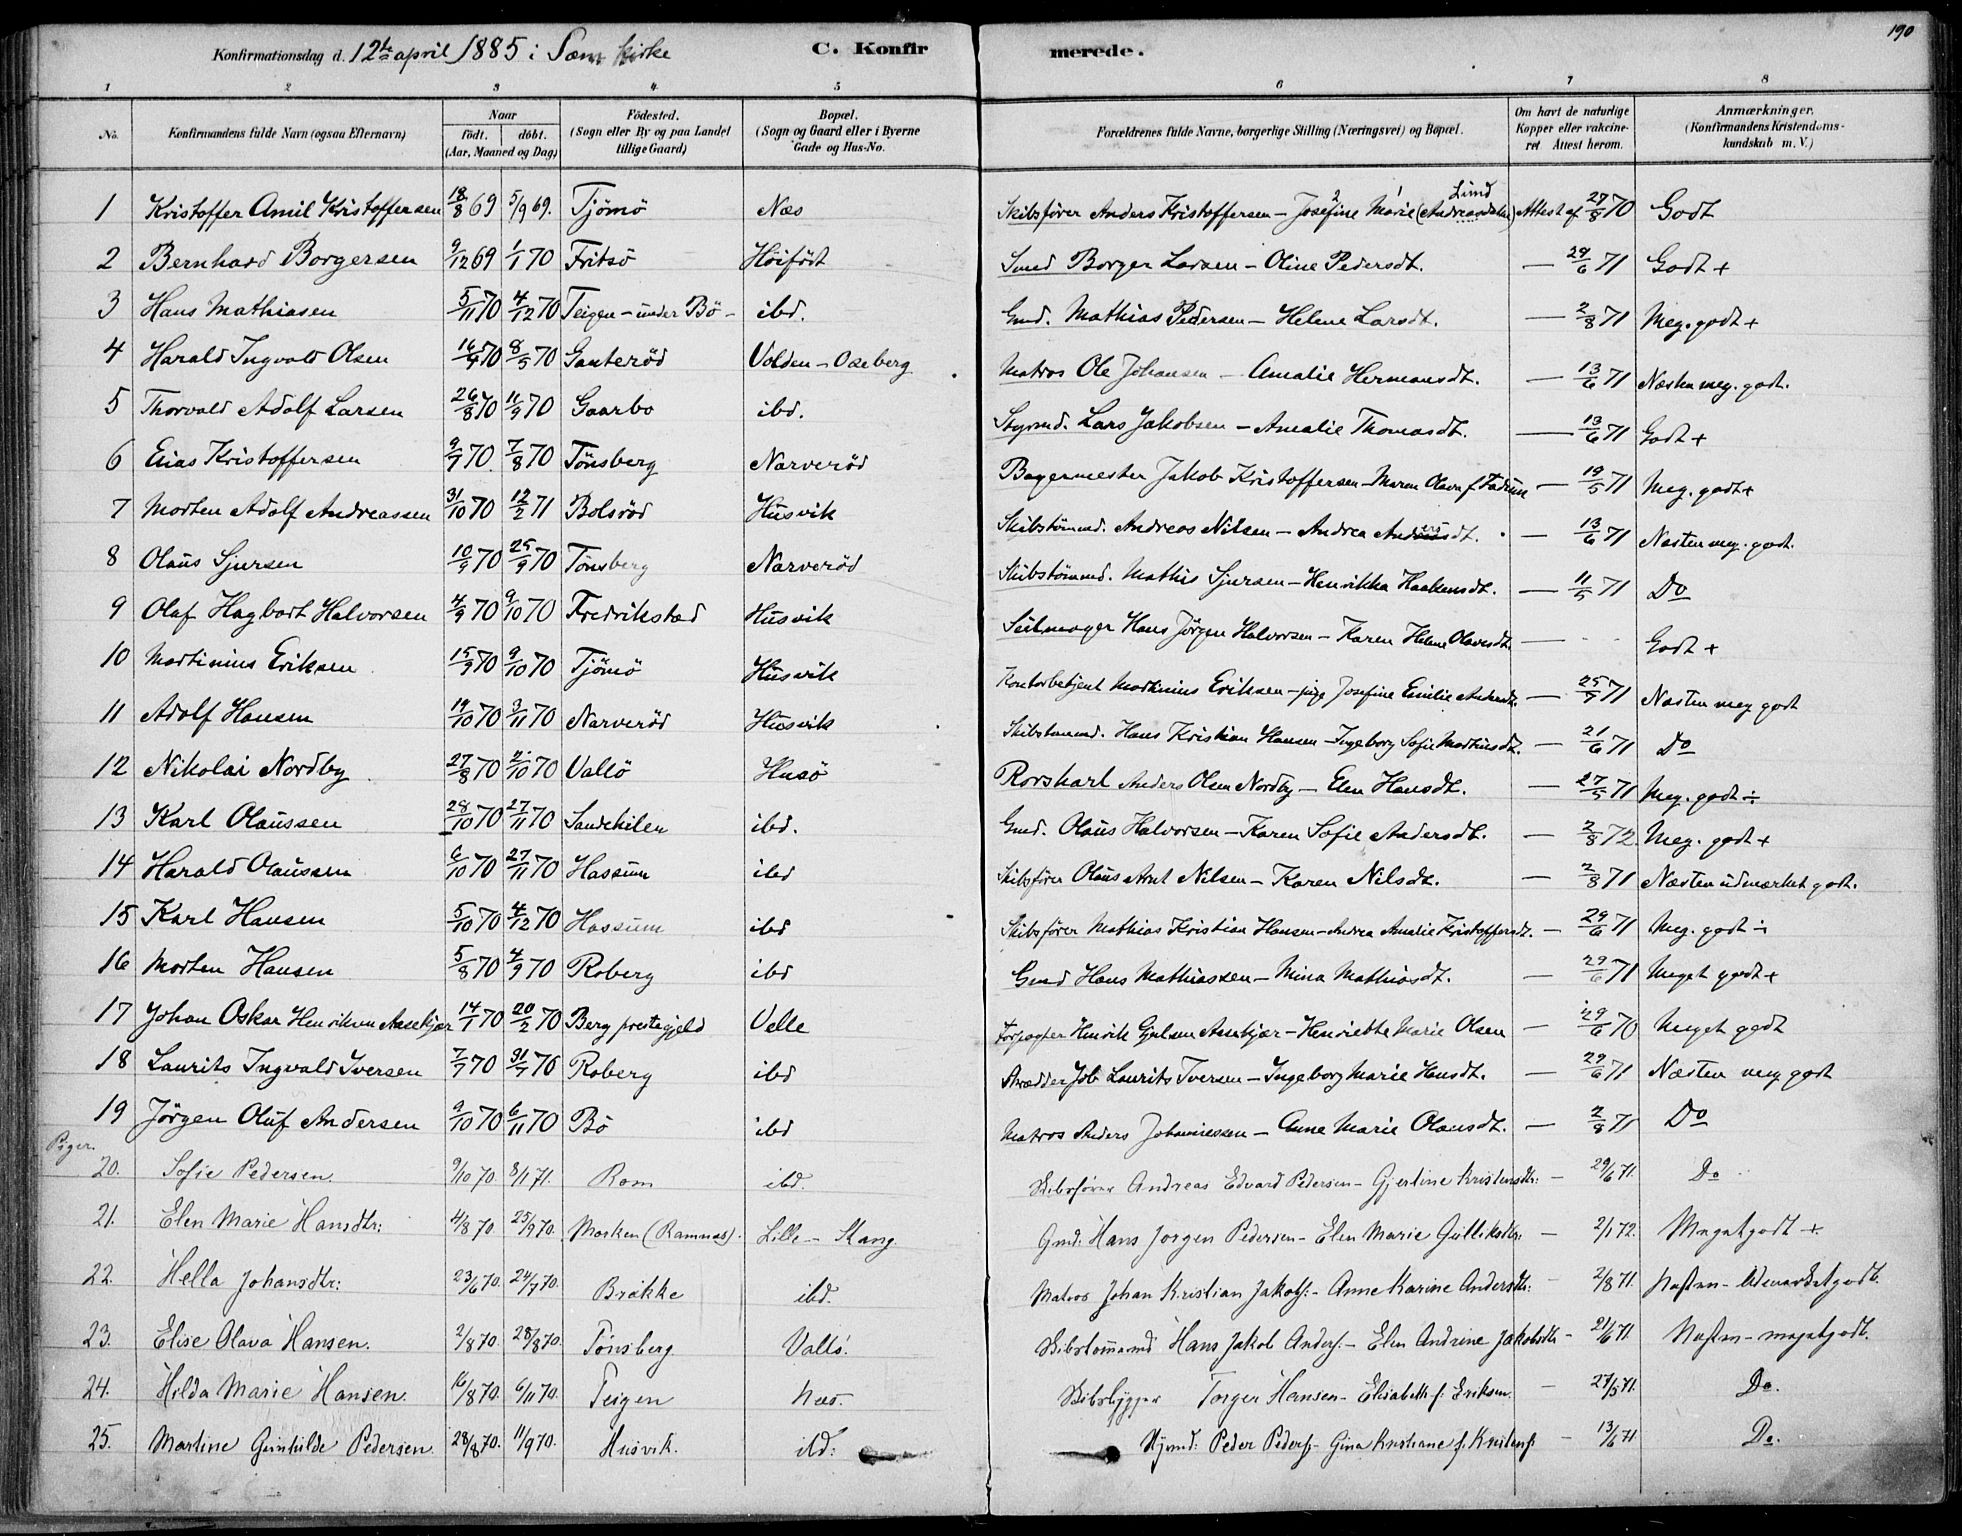 190
Konfirmationsdag d. 12te april 1885 i Sem kirke C. Konfirmerede.
1 2 3 4 5 6 7 8
No. Konfirmandens fulde Navn (ogsaa Efternavn) Naar födt. döbt. (Aar, Maaned og Dag) Födested. (Sogn eller By og paa Landet tillige Gaard) Bopæl. (Sogn og Gaard eller i Byerne Gade og Hus-No. Forældrenes fulde Navne, borgerlige Stilling (Næringsvei) og Bopæl. Om havt de naturlige Kopper eller vakcineret Attest herom. Anmærkninger. (Konfirmandens Kristendomskundskab m. V.)
1 Kristoffer Amil Kristoffersen 18/8 69 5/9 69. Tjömö Næs Skibsfører Anders Kristoffersen - Josefine Marie (Andreasdatter) Lund Attest af 27/8 70 Godt
2 Bernhard Borgersen 9/12 69 1/1 70 Fritsö Höifödt Smed Borger Larsen - Oline Pedersdt. — 29/6 71 Godt +
3 Hans Mathiasen 5/11 70 4/12 70 Teigen - under Bö - ibd. Gmd. Mathias Pedersen - Helene Larsdt. — 2/8 71 Meg. godt +
4 Harald Ingvald Olsen 16/4 70 8/5 70 Ganteröd Volden - Oseberg Matros Ole Johansen - Amalie Hermansdt. — 13/6 71 Næsten meg. godt.
5 Thorvald Adolf Larsen 26/8 70 11/9 70 Gaarbo ibd. Styrmd. Lars Jakobsen - Amalie Thomasdt. — 13/6 71 Godt +
6 Elias Kristoffersen 9/7 70. 7/8 70 Tönsberg Narveröd Bagermester Jakob Kristoffersen - Maren Olava f. Fadum — 19/5 71 Meg. godt +
7 Morten Adolf Andreassen 31/10 70 12/2 71 Bolsröd Husvik Skibstömmd. Andreas Nilsen - Andrea Andersdt. — 13/6 71 Næsten meg. godt.
8 Olaus Sjursen 10/9 70 25/9 70 Tønsberg Narveröd Skibstömmd. Mathis Sjursen - Henrikka Haakensdt. — 11/5 71 Do
9 Olaf Hagbart Halvorsen 4/9 70 9/10 70 Fredrikstad Husvik Seilmager Hans Jörgen Halvorsen - Karen Helene Olavesdt. — Godt +
10 Martinius Eriksen 15/9 70 9/10 70 Tjömö Husvik Kontorbetjent Martinius Eriksen - pige Josefine Emilie Andersdt. — 25/5 71 Næsten meg godt
11 Adolf Hansen 19/10 70 3/11 70 Narveröd Husvik Skibstømmd. Hans Kristian Hansen - Ingeborg Sofie Mathiasdt. — 21/6 71 Do
12 Nikolai Nordby 27/8 70 2/10 70 Vallö Husö Rorskarl Anders Olsen Nordby - Elen Hansdt. — 27/5 71 Meg. godt ÷
13 Karl Olaussen 28/10 70 27/11 70 Sandekilen ibd. Gmd. Olaus Halvorsen - Karen Sofie Andersdt. — 2/8 72 Meg. godt +
14 Harald Olaussen 6/10 70 27/11 70 Hassum ibd Skibsfører Olaus Arnt Nilsen - Karen Nilsdt. — 2/8 71 Næsten udmærket godt.
15 Karl Hansen 5/10 70 4/12 70 Hassum ibd Skibsfører Mathias Kristian Hansen - Andrea Amalie Kristoffersdt. — 29/6 71 Meg. godt ÷
16 Morten Hansen 5/8 70 4/9 70 Roberg ibd Gmd Hans Mathiassen - Mina Mathiasdt. — 29/6 71 Meget godt +
17 Johan Oskar Henriksen Aasekjær 14/1 70 20/2 70 Berg prestegjeld Velle Forpagter Henrik Gjelsen Aasekjær - Henriette Marie Olsen — 29/6 70 Meget godt
18 Laurits Ingvald Iversen 7/7 70 31/7 70 Roberg ibd Skrædder Job Laurits Iversen - Ingeborg Marie Hansdt. — 29/6 71 Næsten meg godt
19 Jörgen Oluf Andersen 9/10 70 6/11 70 Bö ibd Matros Anders Johannessen - Anne Marie Olausdt. — 2/8 71 Do
Piger.
20. Sofie Pedersen. 9/10 70. 8/1 71. Rom ibd. Skibsfører Andreas Edvard Pedersen - Gjertine Kristensdtr: — 29/6 71. Do
21. Elen Marie Hansdtr: 4/8 70. 25/9 70. Morken (Ramnæs). Lille - Stang Gmd: Hans Jørgen Pedersen - Elen Marie Gulliksdtr: — 2/1 72. Megetgodt +.
22. Hella Johansdtr: 23/6 70. 24/7 70. Brøkke ibd. Matros Johan Kristian Jakobs: - Anne Karine Andersdtr: — 2/8 71. Næsten - Udmærketgodt.
23. Elise Olava Hansen. 2/8 70. 28/8 70. Tönsberg Vallö. Skibstømmmd Hans Jakob Anders: - Elen Andrine Jakobsdtr — 21/6 71. Næsten - megetgodt.
24. Hilda Marie Hansen. 16/8 70. 6/11 70. Teigen Næs. Skibsbygger Torger Hansen - Elisabeth f: Eriksen. — 27/5 71. Do.
25. Martine Gunhilde Pedersen 28/8 70. 11/9 70. Husvik. ibd: Styrmd: Peder Peders: - Gina Kristiane f. Kristens: — 13/6 71 Do.